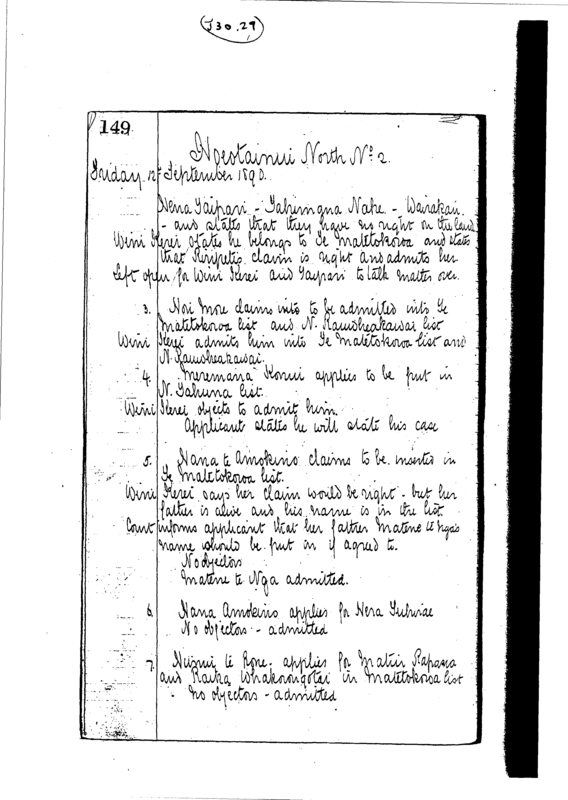 J30.29
149
North No 2
Friday 12th September 1890.
Hena Taipari - Nake - Wairakau
- and states that they have no right on the land
Wini Kerei states he belongs to Te Matetokoroa and states
that claim is right and admits her
Left open for Wini Kerei and Taipari to talk matter over.
3. Hori More claims into to be admitted into Te
Matetokoroa list and N. Rauwheakawai list
Wini Kerei admits him into Te Matetokoroa list and
N. Rauwheakawai.
4. Meremana Konui applies to be put in
N. Tahuna list.
Wini Kerei objects to admit him
Applicant states he will state his case
5. Hana te Amokino claims to be inserted in
Te Matetokoroa list.
Wini Kerei says her claim would be right - but her
father is alive and his name is in the list.
Court informs applicant that her father Matene te Nga's
name should be put in if agreed to.
No objectors
Matene te Nga admitted.
6. Hana Amokino applies for Hera
No objectors - admitted
7. te Rore. applies for
and Raika Whakarongotai in Matetokoroa list
No objectors - admitted